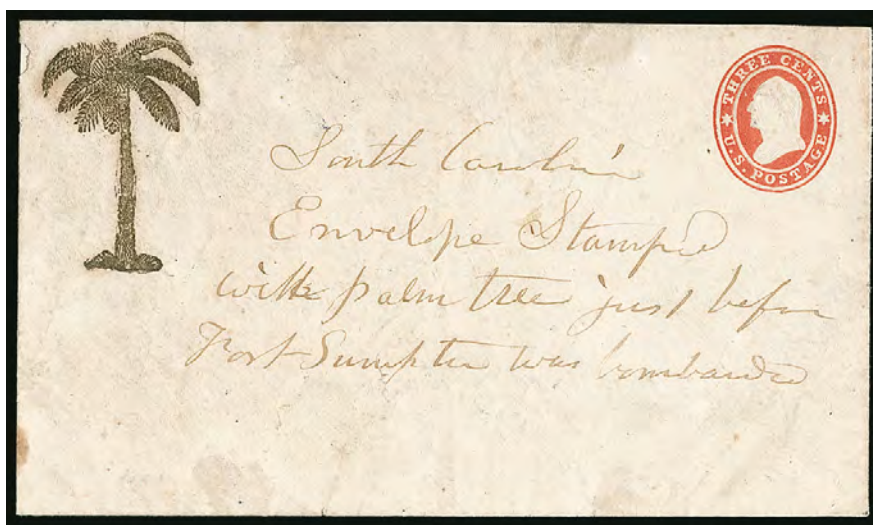 THREE CENTS
U.S. POSTAGE
South Carolin'
Envelope Stamped
with palm tree just before
Fort Sumpter was bombarded